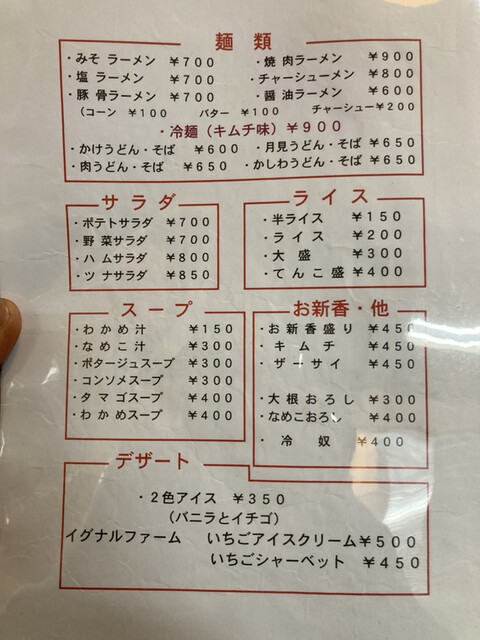 麺類
・みそ ラーメン ￥700 ・焼 肉 ラーメン ￥900
・塩 ラーメン ￥700 ・チャーシューメン ￥800
・豚 骨ラーメン ￥700 ・醤 油ラーメン ￥600
（コーン ￥100 バター ￥100 チャーシュー￥200
・冷麺（キムチ味）￥900
・かけうどん・そば ￥600 ・月見うどん・そば ￥650
・肉うどん・そば ￥650 ・かしわうどん・そば ￥650
サラダ
・ポテトサラダ ￥700
・野 菜サラダ ￥700
・ハ ムサラダ ￥800
・ツ ナサラダ ￥850
ライス
・半ライス ￥150
・ラ イ ス ￥200
・大 盛 ￥300
・てんこ盛 ￥400
スープ
・わかめ汁 ￥150
・なめこ汁 ￥300
・ポタージュスープ ￥300
・コンソメスープ ￥300
・タ マゴスープ ￥400
・わ かめスープ ￥400
お新香・他
・お新香盛り ￥450
・キ ム チ ￥450
・ザーサイ ￥450
・大根おろし ￥300
・なめこおろし ￥400
・冷 奴 ￥400
デザート
・２色アイス ￥350
（バニラとイチゴ）
イグナルファーム いちごアイスクリーム￥500
いちごシャーベット ￥450